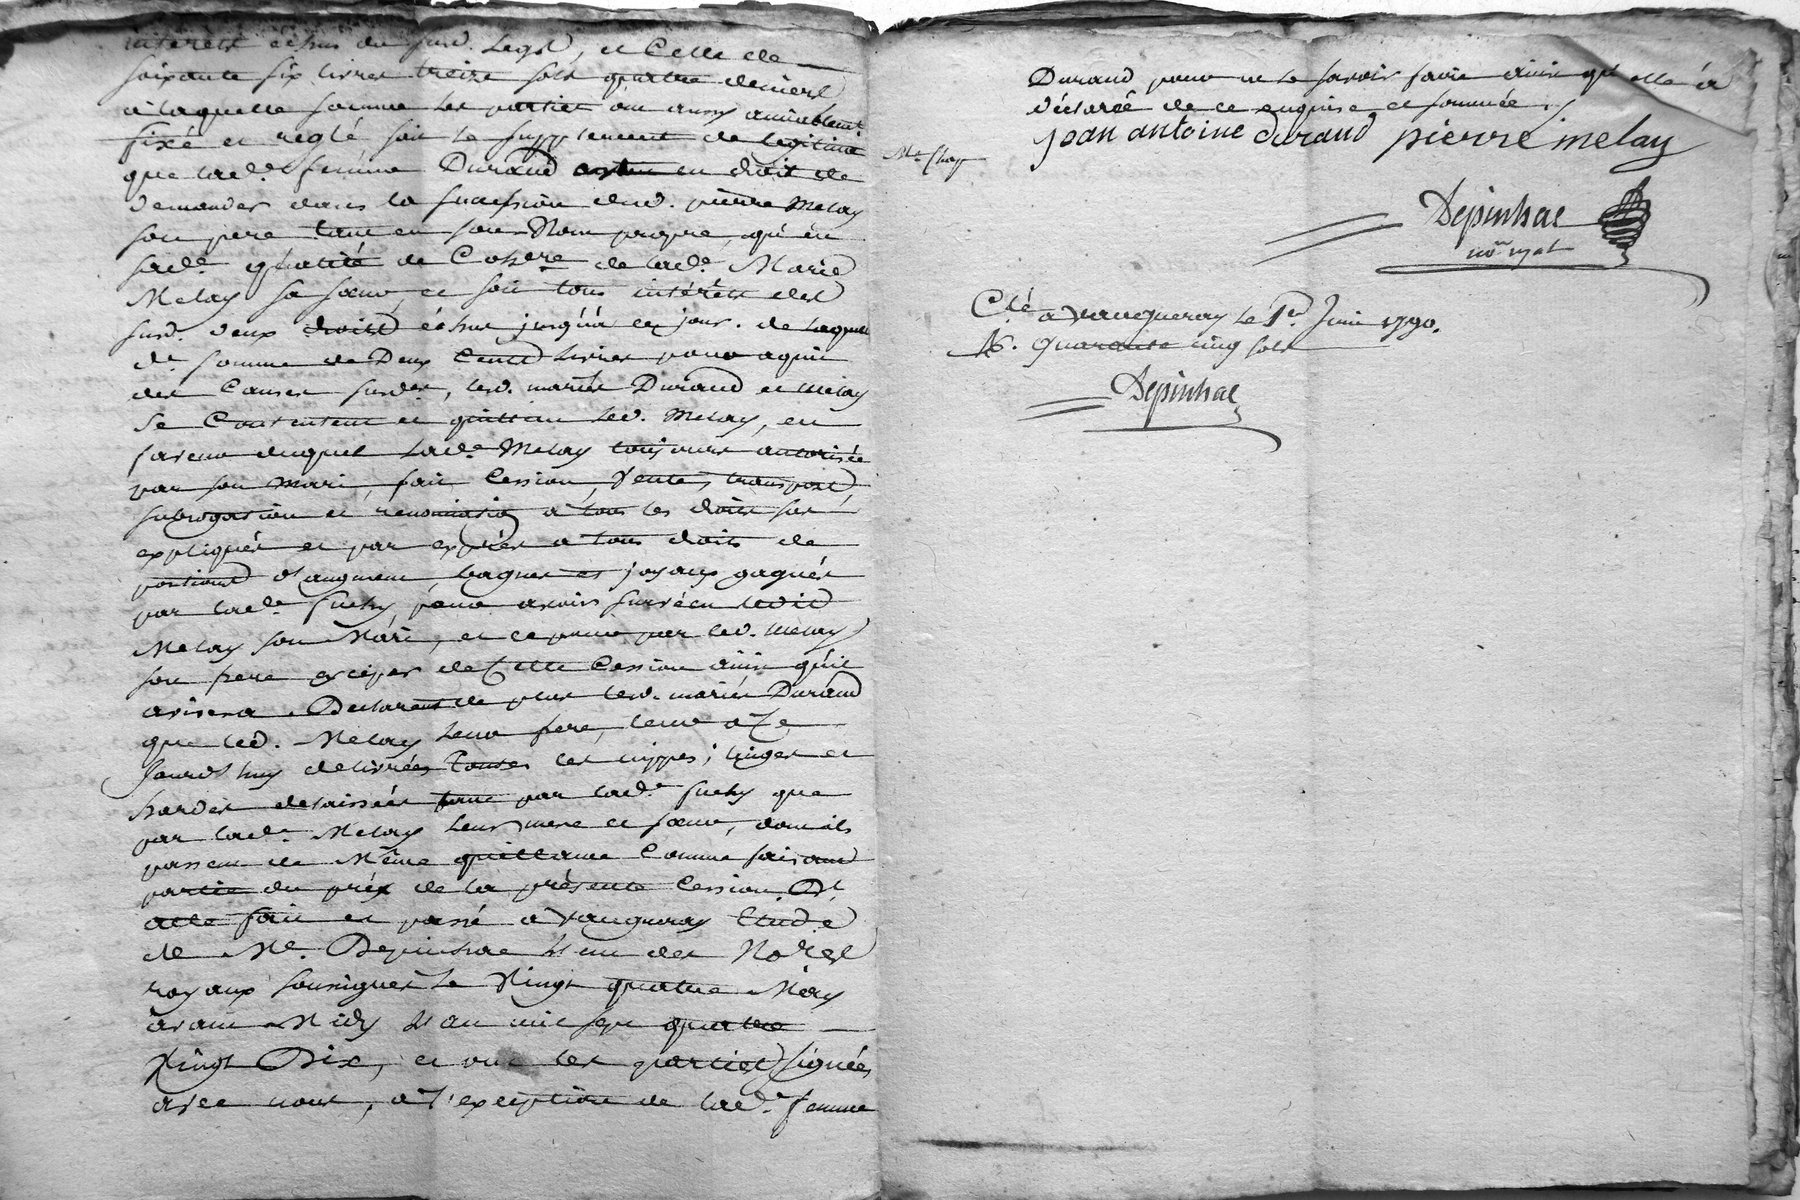 intérêts échus du susd. Legs, et Celle de
soixante six livres treize sols quatre deniers
a laquelle somme les parties ont aussy amiablemt
fixé et réglé soit le supplement de legitime
que lade. femme Durand en droit de
demander dans la succession dud. pierre Melay
son pere tant en son Nom propre, qu'en
sade. qualité de Cohere. de lade. Marie
Melay sa sœur, et soit tous intérêts des
susd. deux droits échus jusqu'a ce jour. de laquel
de. somme de Deux Cents Livres pour
des Causes susdes, lesd. mariés Durand et Melay
se Contentent et quittent led. Melay, en
faveur duquel lade. Melay toujours autorisée
par son mari, fait Cession, Vente, transport,
subrogation et renonciation a tous les droits sus
expliqués et par exprès a tous droits de
portions d'augment, bagues et joyaux gagnés
par lade. Suchy, pour avoir survécu ledit
Melay son Mari, et ce pour par led. Melay
son frere exciper de Cette Cession ainsi qu'il
avisera. Declarent de plus lesd. mariés Durand
que led. Melay leur frere, leur a Ce
Jourd'huy delivrées toutes les nippes, linges et
hardes delaissées tant par lade. Suchy que
par lade. Melay leurs mere et sœur, dont ils
passent de Même quittance Comme faisant
partie du préx de la présente Cession Dt
acte fait et passé a Vaugneray Etude
de Me. Depinhac L'un des Nores
royaux soussignés le Vingt quatre May
avant Midy L'an mil sept quatre
Vingt Dix, et ont les parties signées
avec nous, a l'exception de lade. femme
Durand pour ne le savoir faire ainsi qu'elle a
déclaré de ce enquise et sommée.
jean antoine durand pierre melay
Depinhac
nore. royal
Clé a Vaugneray le 1er. Juin 1790.
R. Quarante cinq sols
Depinhac